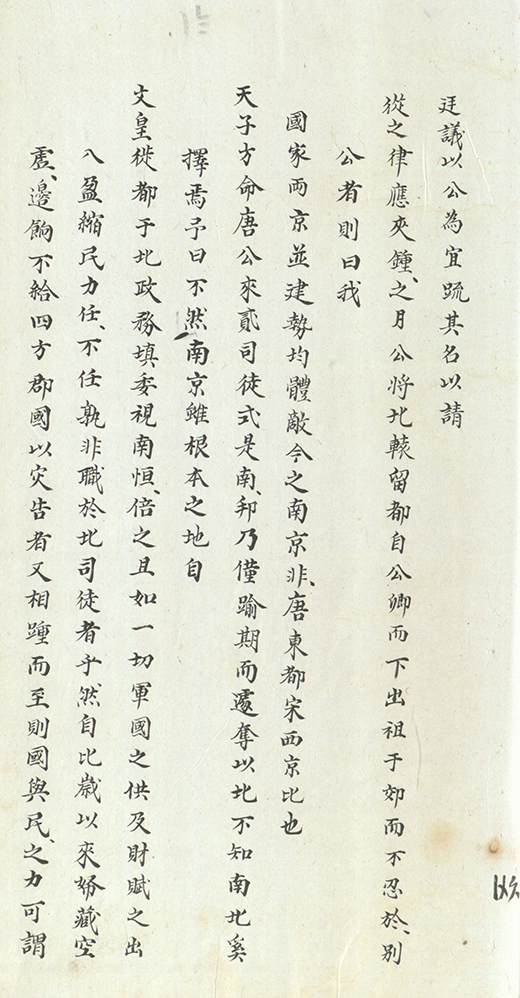 廷議以公為宜疏其名以請
從之律應夾鍾之月公將北轅留都自公卿而下出祖于郊而不忍於別
公者則曰我
國家兩京並建勢均體敵今之南京非唐東都宋西京比也
天子方命唐公來貳司徒式是南邦乃僅踰期而遽奪以北不知南北奚
擇焉予曰不然南京雖根本之地自
文皇徙都于北政務填委視南恒倍之且如一切軍國之供及財賦之出
入盈縮民力任不任孰非職於北司徒者乎然自比歲以來帑藏空
虛邊餉不給四方郡國以灾告者又相踵而至則國與民之力可謂